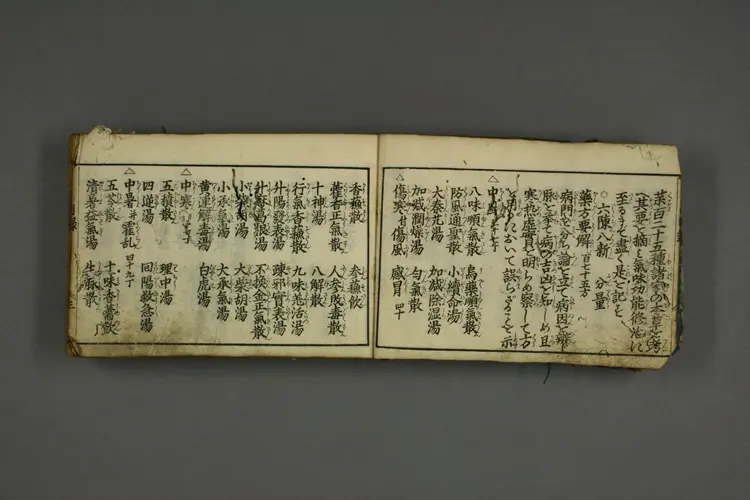 薬百二十五種諸家の本草を考
へ其要を摘て氣味功能修治に
至るまで盡く是を記す
○六陳八新 分量
藥方要解 百七十五方
病門を分ち論を立て病因を辨じ
脈を察て病の吉凶を知しめ且
寒熱虚實を明らめ察して方
を用るにおいて誤らざることを示
△中風
八味順氣散 烏藥順氣散
防風通聖散 小續命湯
大秦艽湯 加減除湿湯
加減潤燥湯 匀氣散
△傷寒并傷風 感冒 四十
香蘓散 参蘓飲
藿香正氣散 人参敗毒散
十神湯 八解散
行氣香蘓散 九味羌活湯
升陽發表湯 疎邪實表湯
升麻葛根湯 不換金正氣散
小柴胡湯 大柴胡湯
小承氣湯 大承氣湯
黄連解毒湯 白虎湯
△中寒
五積散 理中湯
四逆湯 回陽救急湯
△中暑并霍乱 四十九丁
五苓散 十味香薷飲
清暑益氣湯 生脈散